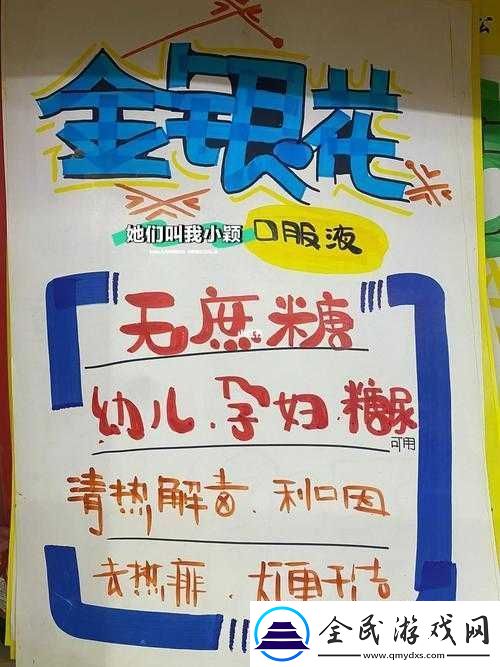 金银花
她们叫我小颖 口服液
无庶糖
幼儿.孕妇.糖尿
可用
清热解毒.利咽
去热痱.大便干结
全民游戏网
www.qmydxs.com